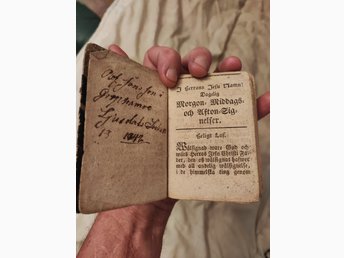 Olof Jonsson i
13 1842
I HErrans JEsu Namn!
Daglig
Morgon- Middags-
och Afton-Sig-
nelser.
Heligt Lof.
Wälsignad ware Gud och
wårs HErras JEsu Christi Fa-
der, den oß wälsignat hafwer
med all andelig wälsignelse,
i de himmelska ting genom